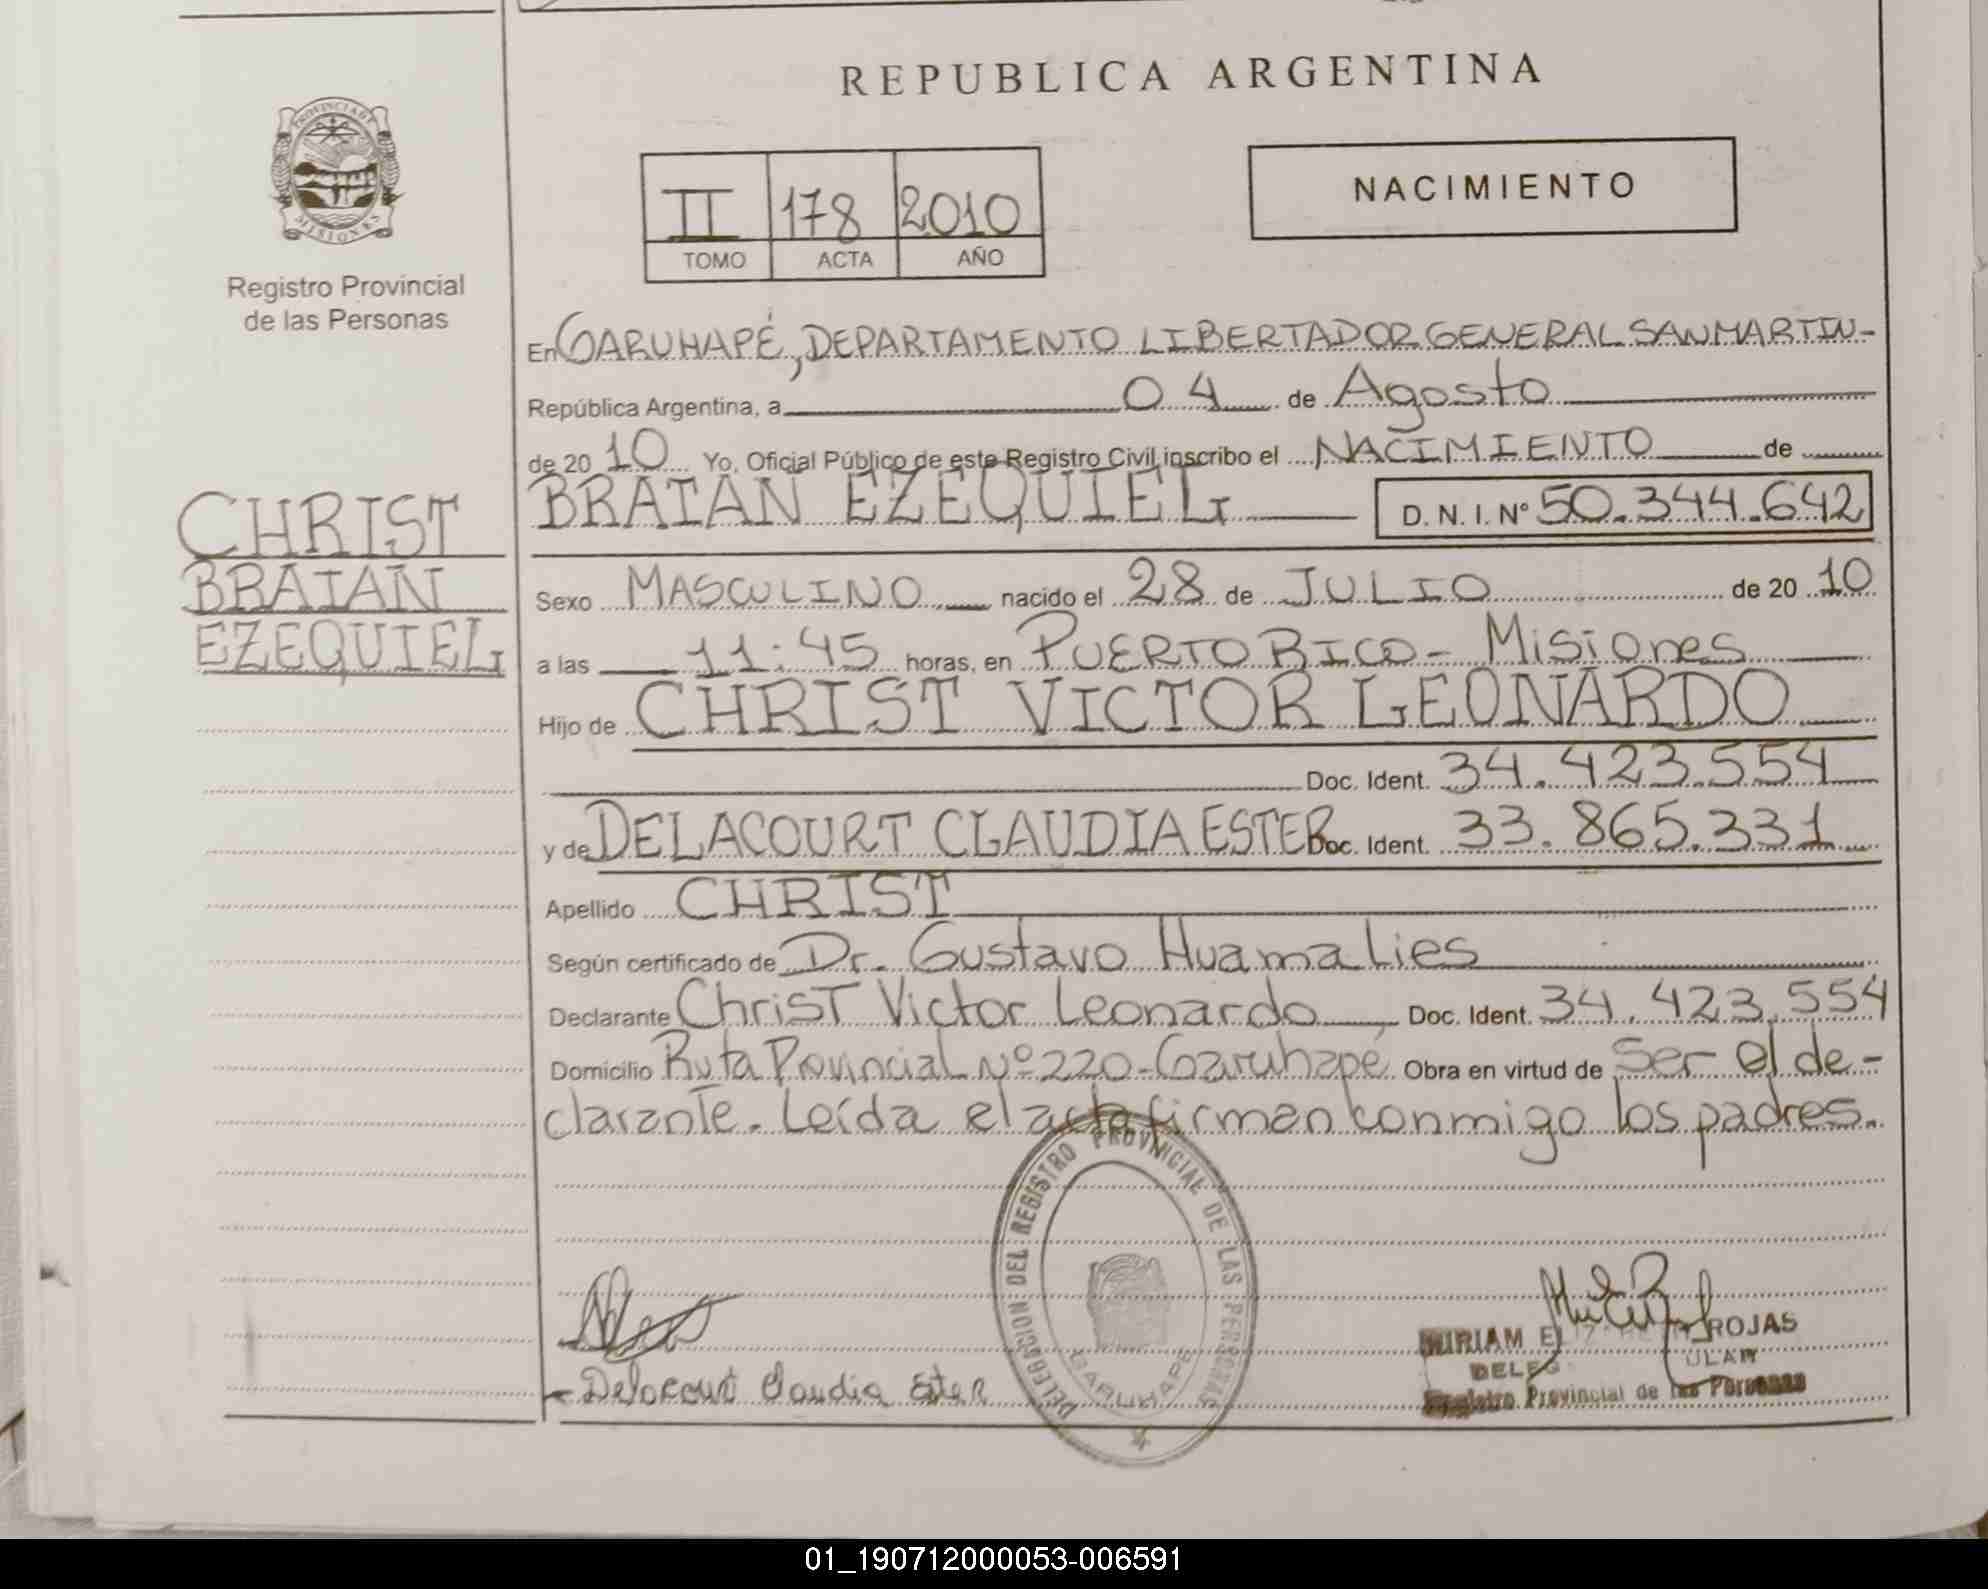 REPUBLICA ARGENTINA
PROVINCIA DE
MISIONES
Registro Provincial
de las Personas
II 178 2010
TOMO ACTA AÑO
NACIMIENTO
En GARUHAPÉ, DEPARTAMENTO LIBERTADOR GENERAL SAN MARTIN-
República Argentina, a 04 de Agosto
de 2010 Yo, Oficial Público de este Registro Civil inscribo el NACIMIENTO de
BRAIAN EZEQUIEL D.N.I. Nº 50.344.642
CHRIST
BRAIAN
EZEQUIEL
Sexo MASCULINO nacido el 28 de JULIO de 2010
a las 11:45 horas, en PUERTO RICO - Misiones
Hijo de CHRIST VICTOR LEONARDO
Doc. Ident. 34.423.554
y de DELACOURT CLAUDIA ESTER Doc. Ident. 33.865.331
Apellido CHRIST
Según certificado de Dr. Gustavo Huamalies
Declarante Christ Victor Leonardo Doc. Ident. 34.423.554
Domicilio Ruta Provincial Nº 220 - Garuhapé Obra en virtud de Ser el de-
clarante. Leída el acta firman conmigo los padres.
DELEGACION DEL REGISTRO PROVINCIAL DE LAS PERSONAS
GARUHAPE
Delacourt Claudia Ester
MIRIAM ROJAS
Registro Provincial de las Personas
01_190712000053-006591